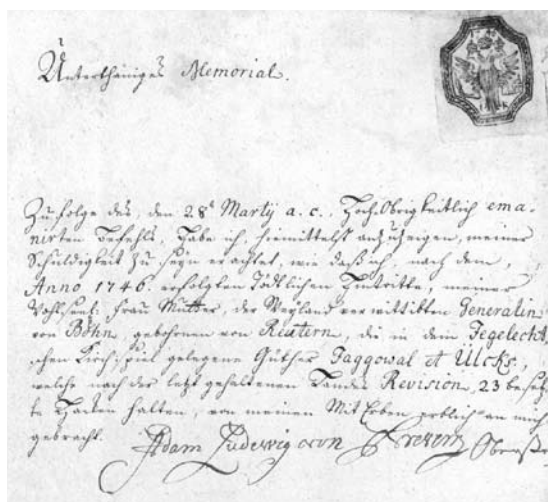 Unterthäniges Memorial.
Zu folge des, den 28ᵗ Martÿ a. c. Hoch-Obrigkeitlich ema-
nirten Befehls, habe ich hiemittelst anzuzeigen, meiner
Schuldigkeit zu seyn erachtet, wie daß ich, nach dem
Anno 1746. erfolgten Tödtlichen Hintritte, meiner
Wohlseel: Frau Mutter, der Weyland verwittibten Generalin
von Bohn, gebohrnen von Reutern, die in dem Segelecht-
schen Kirch-spiel gelegene Güther Taggowal et Ülcks,
welche nach der letzt gehaltenen Landes Revision, 23 besetz-
te Haaken halten, von meinen Mit Erben erblich an mich
gebracht.
Adam Ludewig von
Oberster